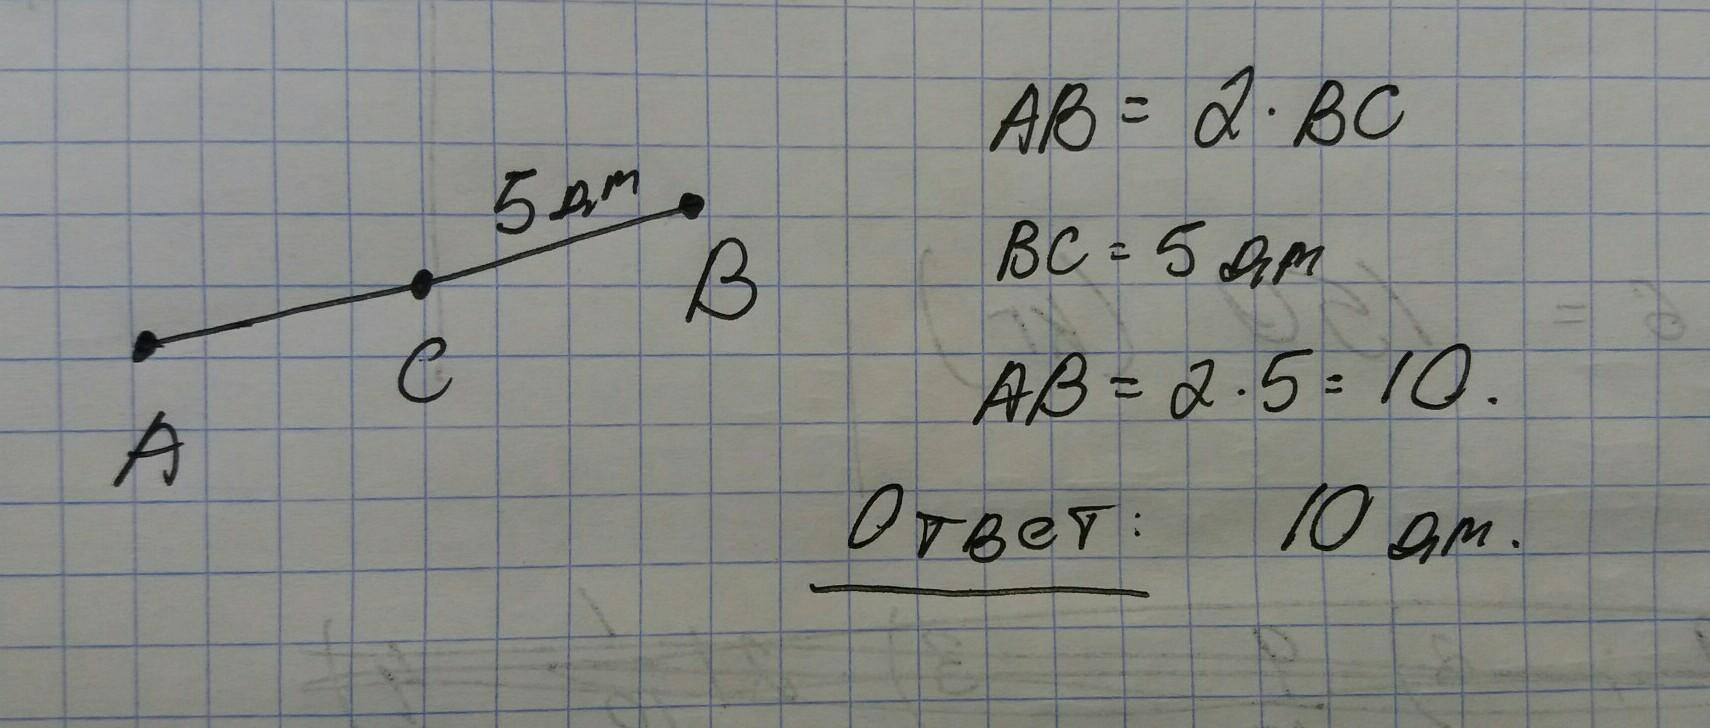 5 дм
A
C
B
AB = 2 · BC
BC = 5 дм
AB = 2 · 5 = 10.
Ответ: 10 дм.